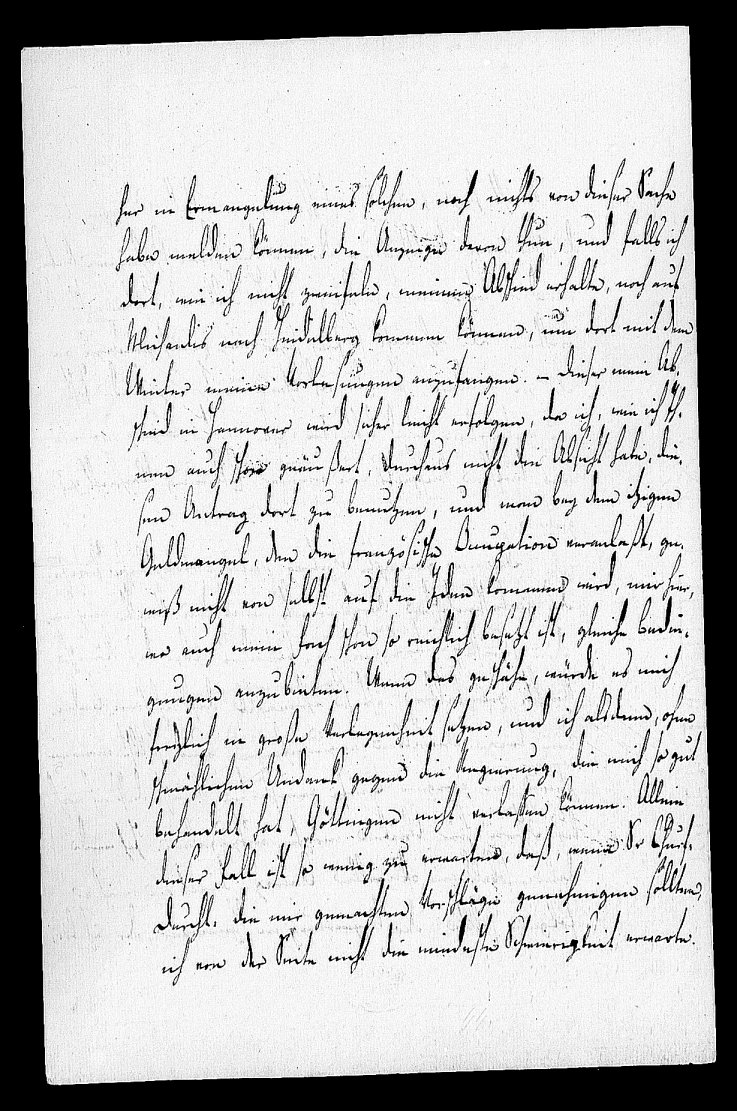 her in Ermangelung eines solchen, noch nichts von dieser Sache
habe melden können, die Anzeige davon thun, und falls ich
dort, wie ich nicht zweifele, meinen Abschied erhalte, noch auf
Michaelis nach Heidelberg kommen können, um dort mit dem
Winter meine Vorlesungen anzufangen. – Dieser mein Ab-
schied in Hannover wird sicher leicht erfolgen, da ich, wie ich Ih-
nen auch schon geäußert, durchaus nicht die Absicht habe, die-
sen Antrag dort zu benutzen, und man bey dem itzigen
Geldmangel, den die französische Occupation veranlaßt, ge-
wiß nicht von selbst auf die Idee kommen wird, mir hier,
wo auch mein Fach schon so reichlich besetzt ist, gleiche Bedin-
gungen anzubieten. Wenn das geschähe, würde es mich
freylich in große Verlegenheit setzen, und ich alsdann, ohne
schmählichen Undank gegen die Regierung, die mich so gut
behandelt hat, Göttingen nicht verlassen können. Allein
dieser Fall ist so wenig zu erwarten, daß, wenn Sr Churf.
Durchl. die mir gemachten Vorschläge genehmigen sollten,
ich von der Seite nicht die mindeste Schwierigkeit erwarte.